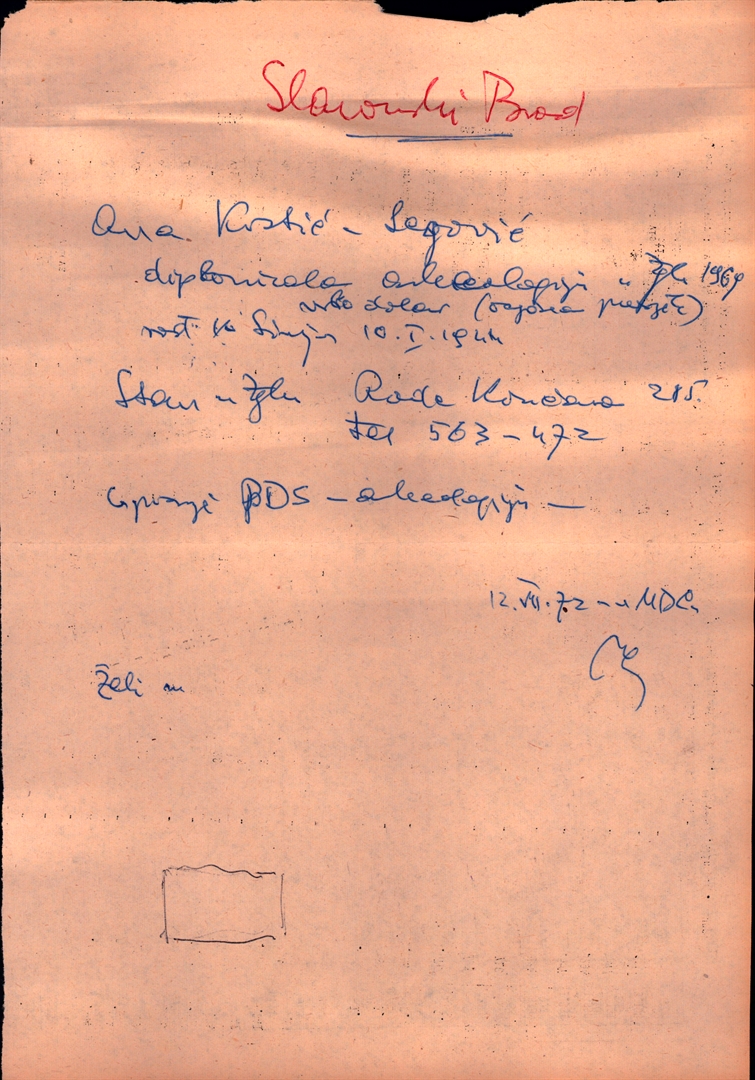 Slavonski Brod
Ana Krstić – Legović
diplomirala arheologiju u Zgbu 1969
vrlo dobar
10. I. 1944
Stan u Zgbu Rade Končara 285.
tel 563-472
PDS – arheologiju –
12. VII. 72 – u MDCu
Želi